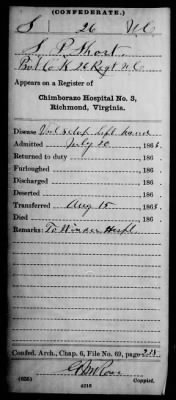 (CONFEDERATE.)
S 26 N.C.
S. P. Short
Co. K 26 Regt. N.C.
Appears on a Register of
Chimborazo Hospital No. 3,
Richmond, Virginia.
Disease left hand
Admitted July 20, 186
Returned to duty , 186
Furloughed , 186
Discharged , 186
Deserted , 186
Transferred Aug 15, 186
Died , 186
Remarks: To Winder Hospl
Confed. Arch., Chap. 6, File No. 69, page
(635) 4216 Copyist.